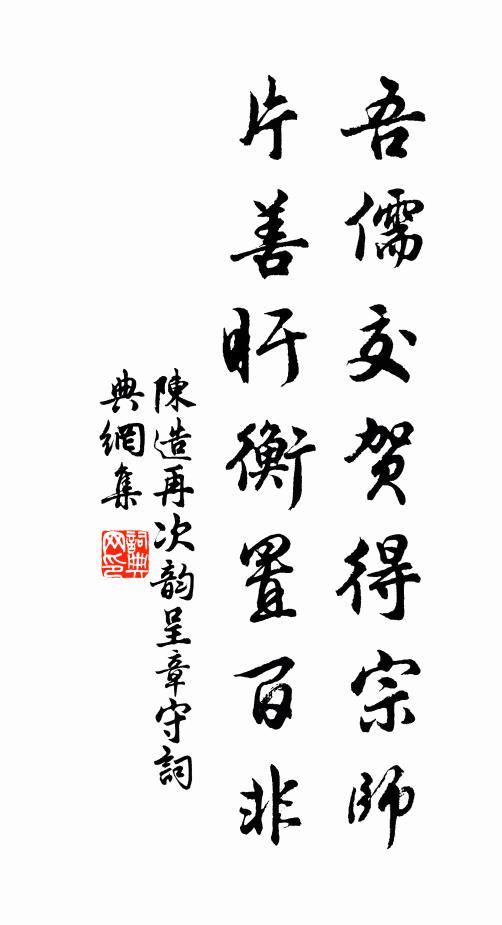 吾儒交贺得宗師
片善盱衡置百非
陳造再次韵呈章守詞
典網集
詞典
网印